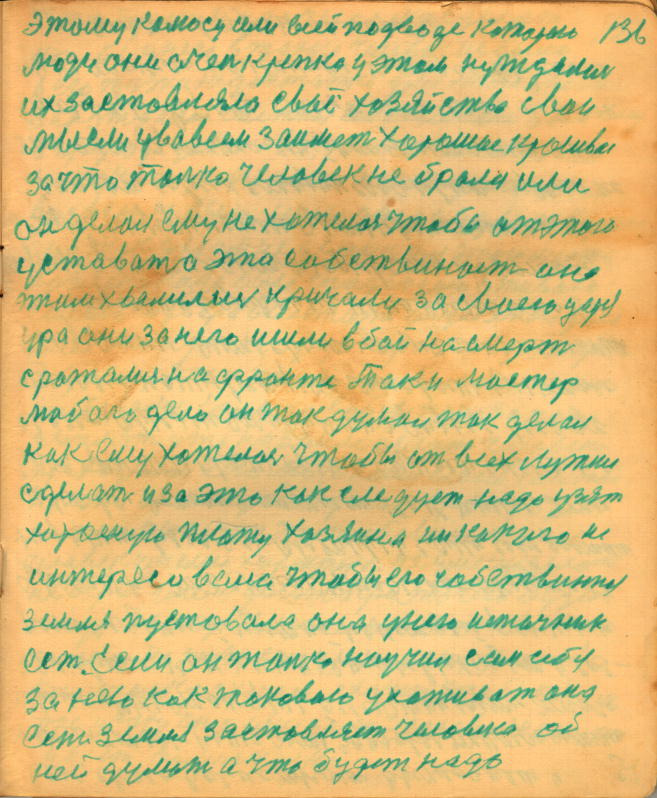 этому колосу или всей подводе которо 136
люди они очен крепко у этом нуждалис
их заставляло своё хозяйство свои
мысли у вавсем займет хорошое красивае
за что толко человек не брался или
он делал ему не хотелос чтобы от этого
устават а эта собствиност она
этим хвалилися кричали за своего царя
ура они за него шли в бой на смерт
сражалис на фронте Так и мастер
любого дела он так думал так делал
как ему хотелос чтобы от всех лучши
сделат и за это как следует надо взят
хорошую плату хозяина никакого не
интересовало чтобы его собствиная
земля пустовала она у него источник
ест. Если он толко научил сам себя
за нею как таковою ухаживат она
ест. Земля заставляет человека об
ней думат а что будет надо